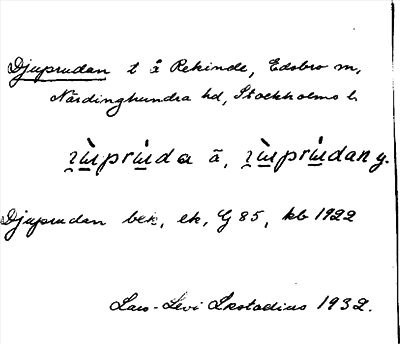 Djuprudan t å Rekinde, Edsbro sn,
Närdinghundra hd, Stockholms l.
Djuprudan bek, ek, G 85, kb 1922
Lars-Levi Læstadius 1932.